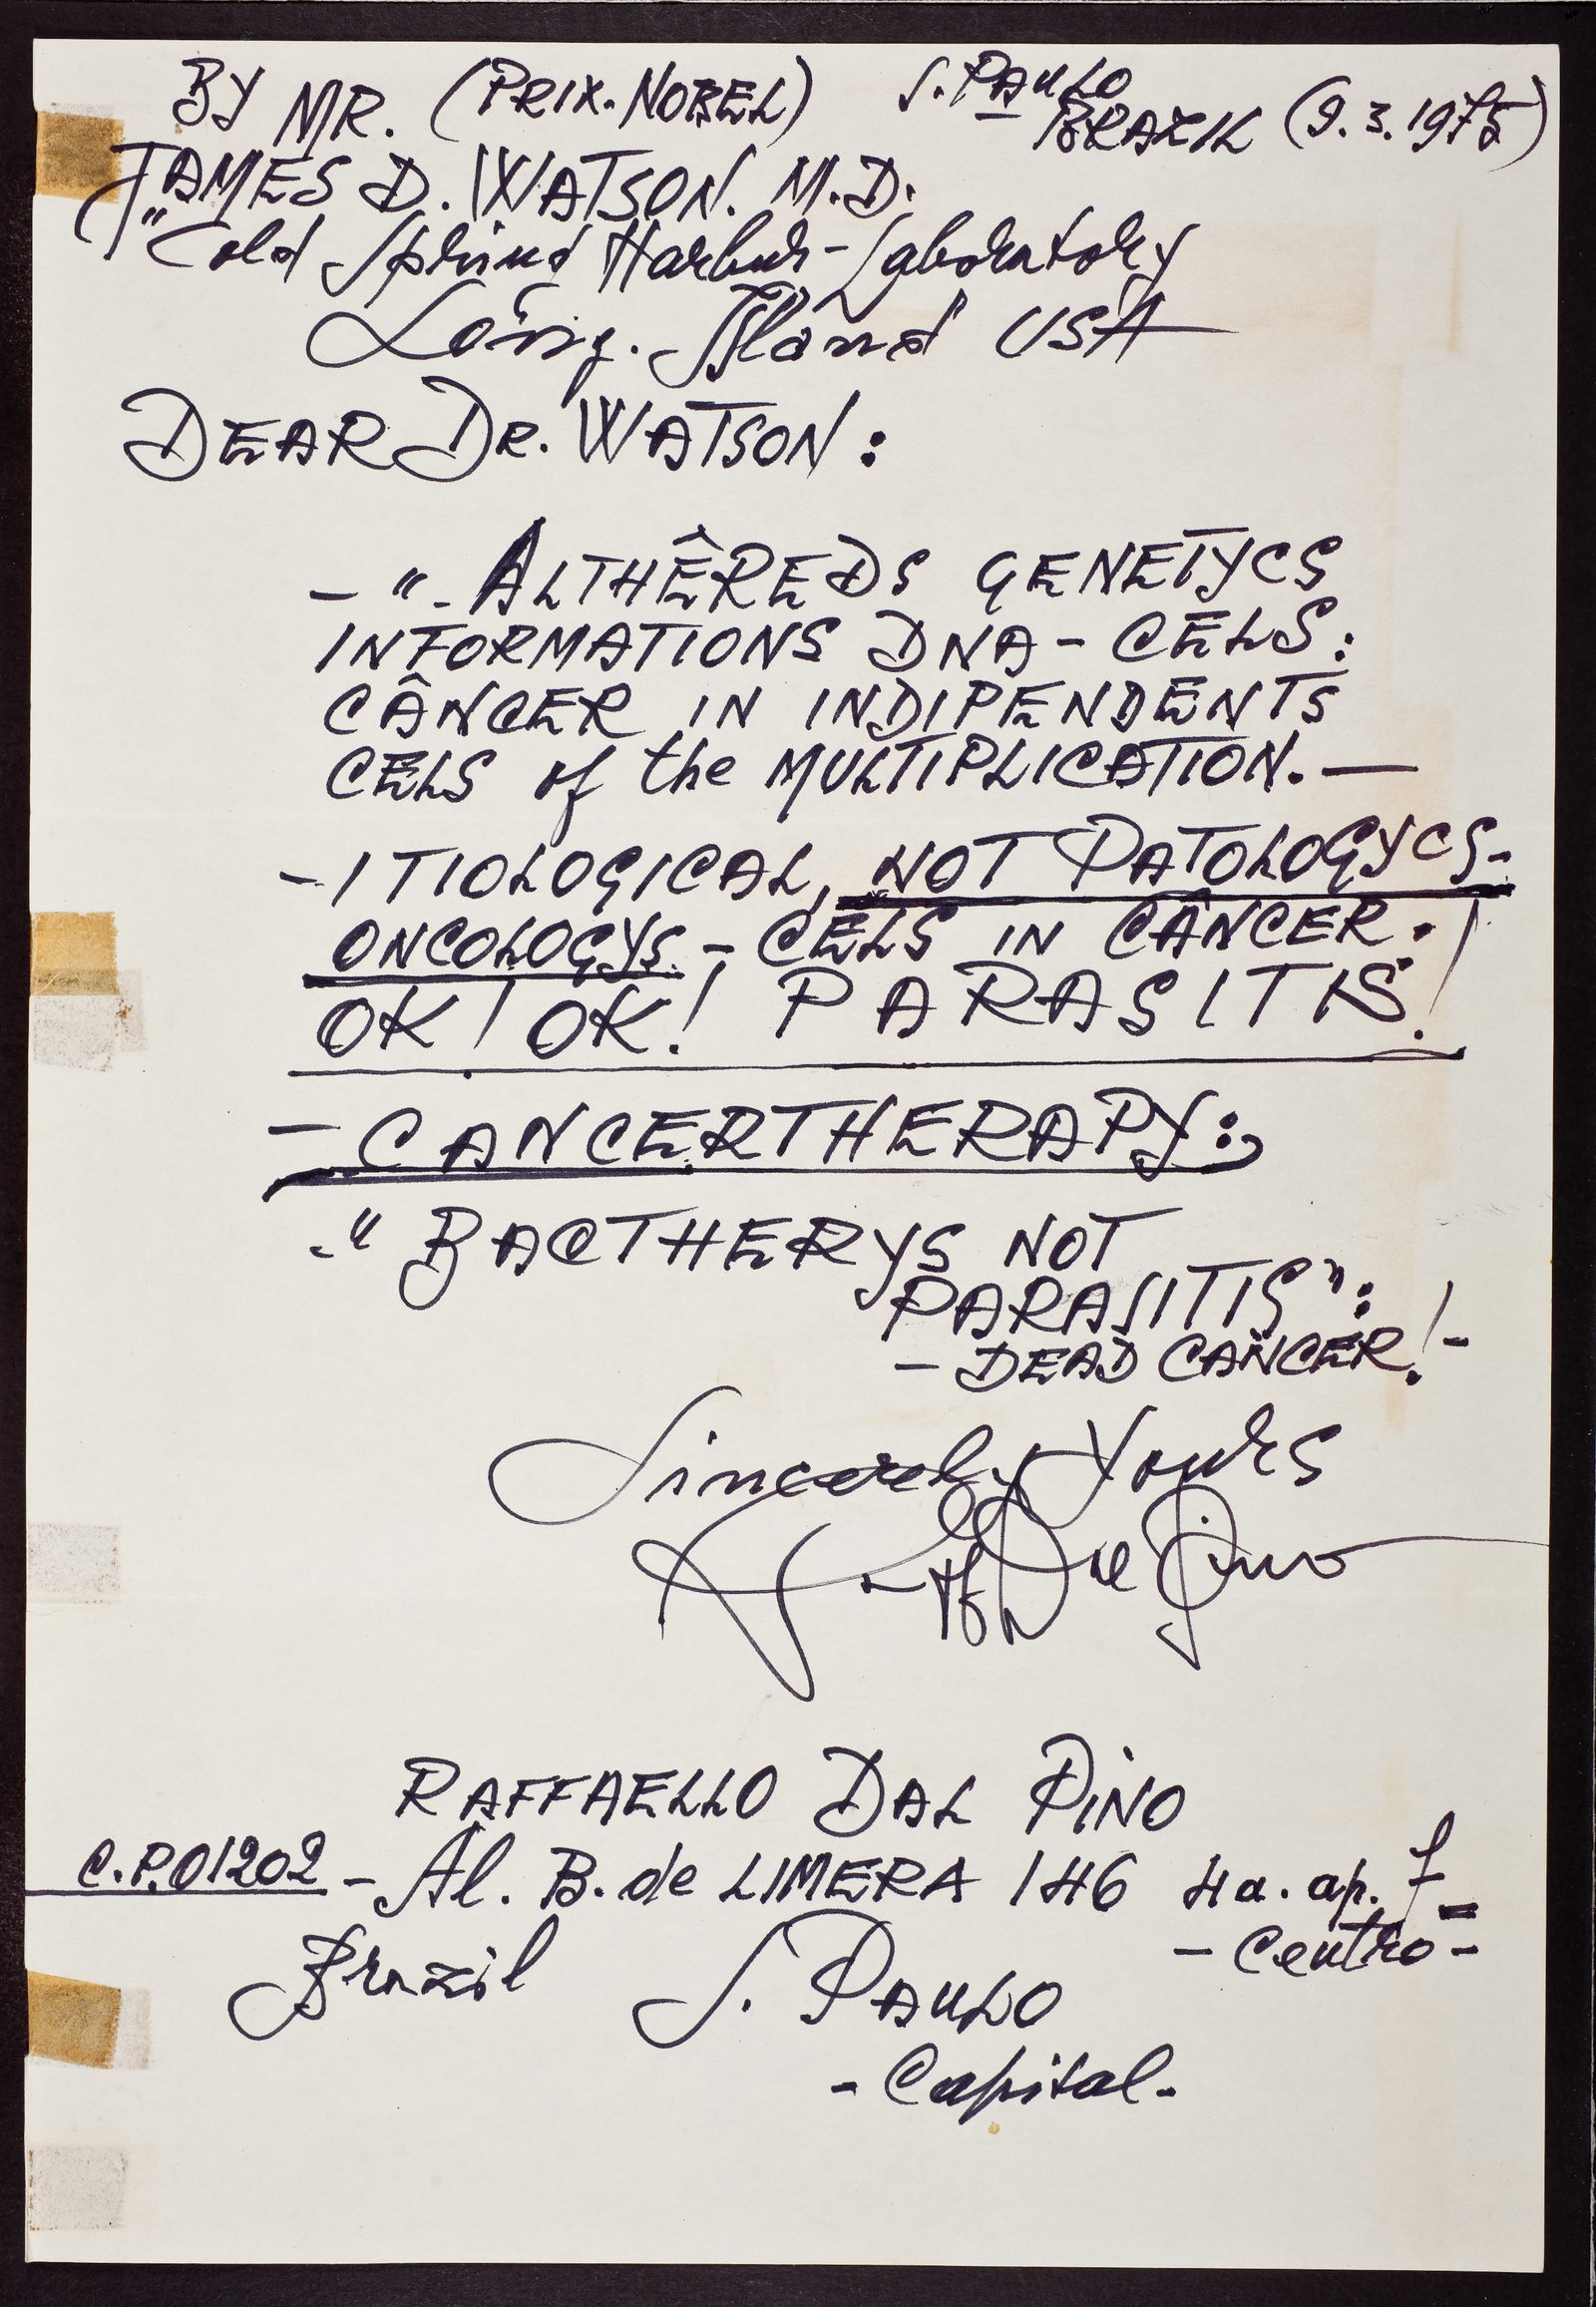 BY MR. (PRIX. NOBEL) S. PAULO
BRAZIL (9.3.1975)
(JAMES D. WATSON. M.D.
"Cold Spring Harbur-Laboratory
Long. Island" USA
DEAR DR. WATSON:
- ". ALTHÊREDS GENETYCS
INFORMATIONS DNA - CELS:
CÂNCER IN INDIPENDENTS
CELS of the MULTIPLICATION. —
- ITIOLOGICAL, NOT PATOLOGYCS-
ONCOLOGYS. - CELS IN CÂNCER.!
OK! OK! PARASITIS!
- CANCERTHERAPY:,
." BACTHERYS NOT
PARASITIS":
- DEAD CANCER! -
Sincerely Yours
Raff Dal Pino
RAFFAELLO DAL PINO
C.P.01202 - Al. B. de LIMERA 146 4a. ap. 7
- Centro -
Brazil S. PAULO
- Capital -